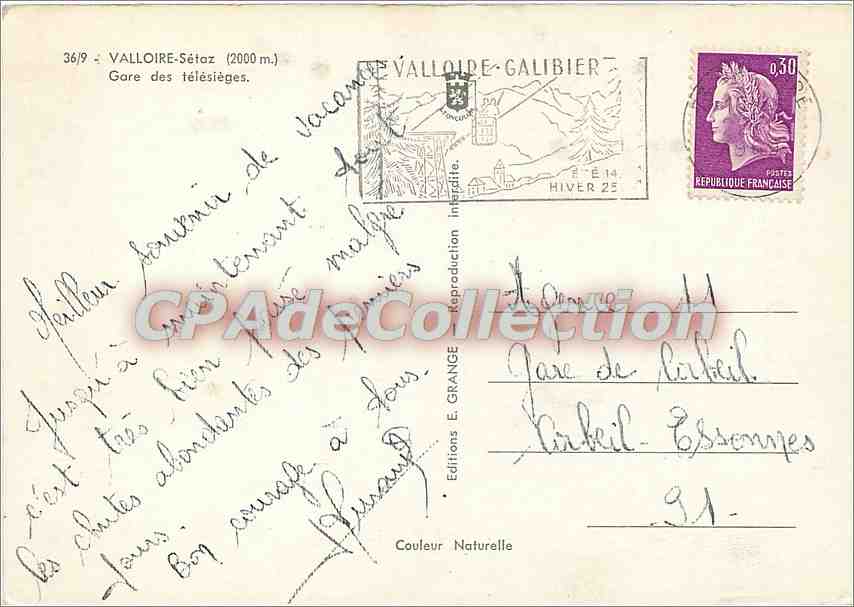 36/9 - VALLOIRE-Sétaz (2000 m.)
Gare des télésièges.
VALLOIRE-GALIBIER
ÉTÉ 14
HIVER 25
0,30
POSTES
REPUBLIQUE FRANÇAISE
Meilleur souvenir de vacances
Jusqu'à maintenant tout
c'est très bien passé malgré
les chutes abondantes des premiers
jours.
Bon courage à tous.
CPAdeCollection.com
Editions E. GRANGE - Reproduction interdite.
Agence 11
Gare de Corbeil
Corbeil - Essonnes
91-
Couleur Naturelle